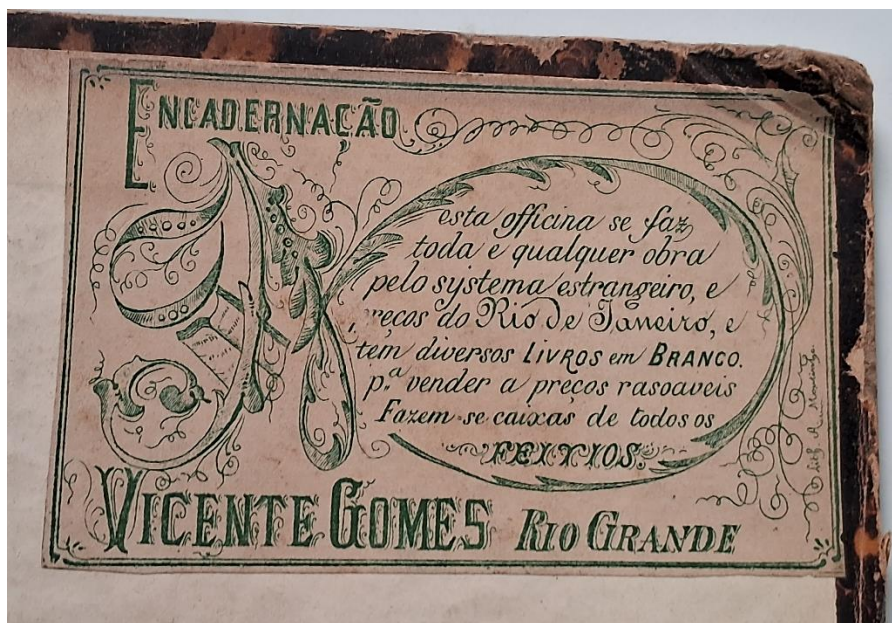 ENCADERNACÃO
Nesta officina se faz
toda e qualquer obra
pelo systema estrangeiro, e
preços do Rio de Janeiro, e
tem diversos LIVROS em BRANCO.
p.ª vender a preços rasoaveis
Fazem-se caixas de todos os
FEITIOS.
VICENTE GOMES RIO GRANDE
Lith. A.